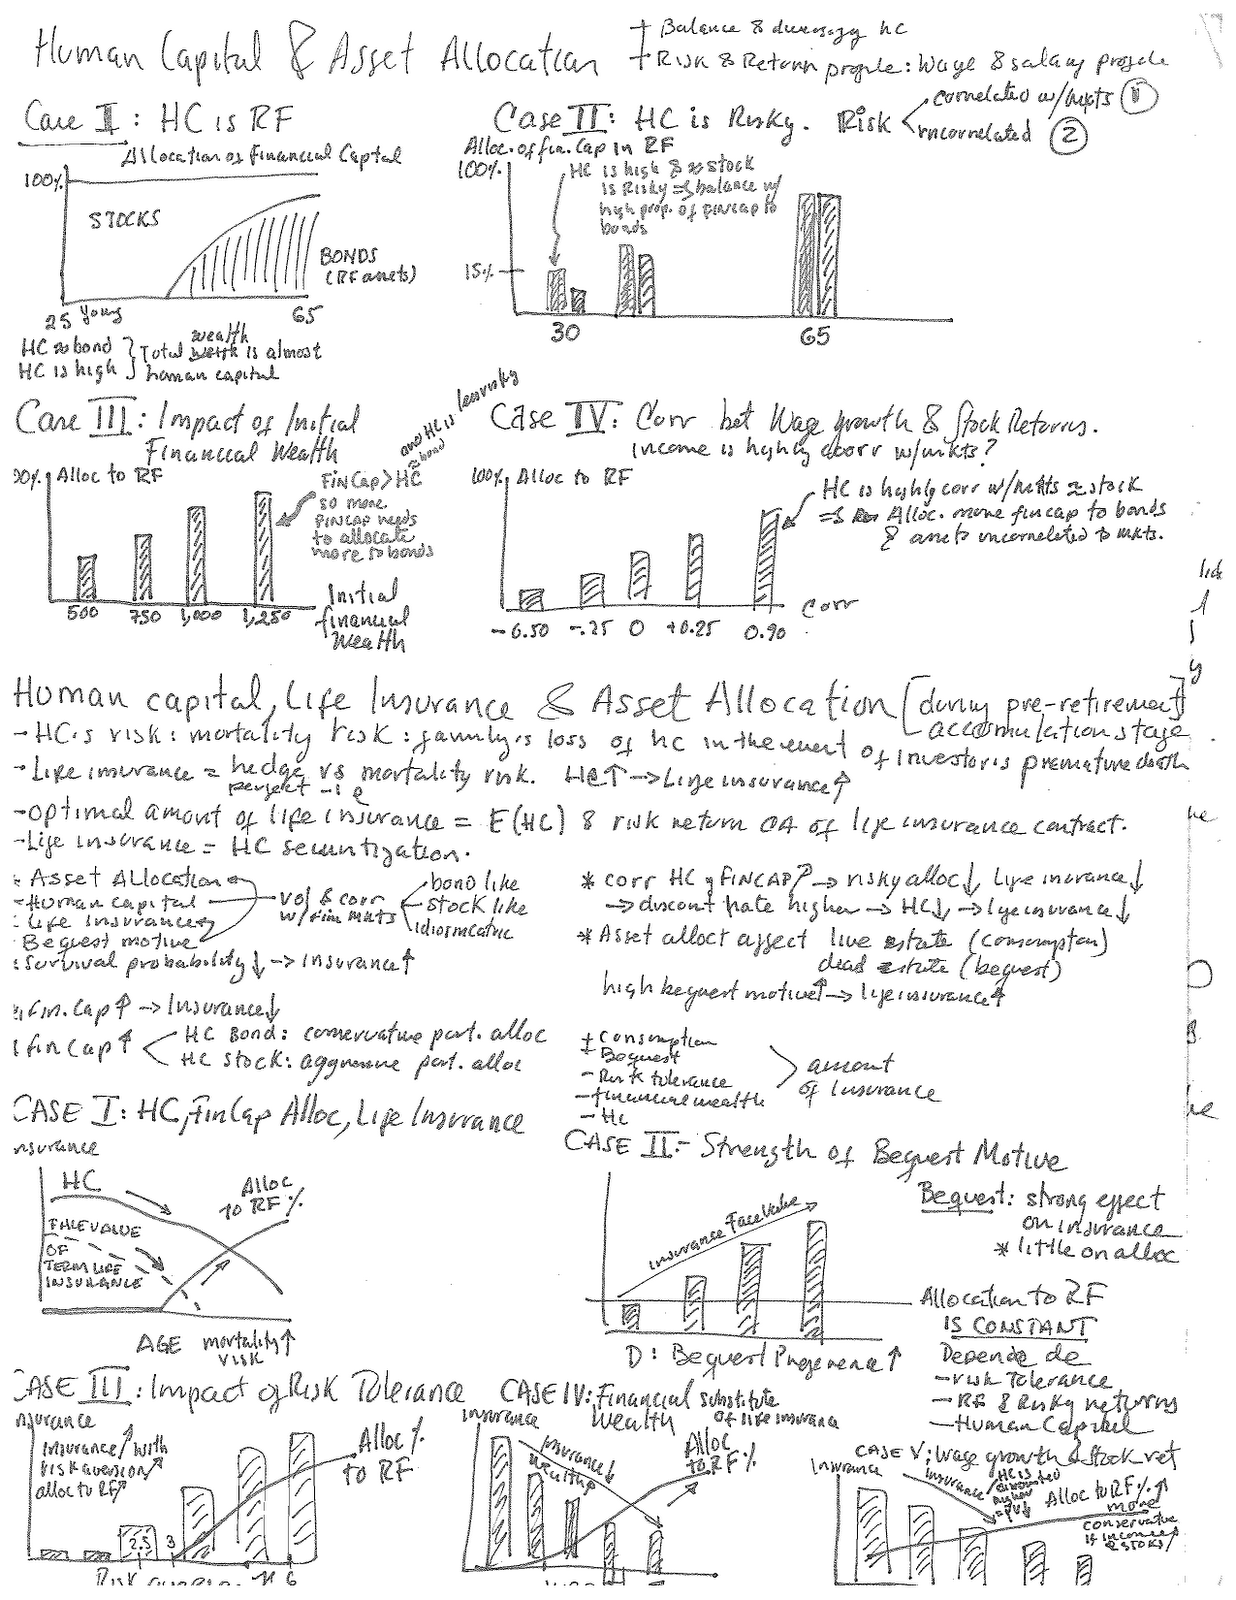 Human Capital & Asset Allocation
+ Balance & diversify hc
+ Risk & Return profile: Wage & salary profile
Case I: HC is RF
Allocation of Financial Capital
100%
STOCKS
BONDS
(RF assets)
25 Young
65
HC ≈ bond
HC is high
Total wealth is almost
human capital
Case II: HC is Risky. Risk
correlated w/mkts 1
uncorrelated 2
Alloc. of fin. Cap in RF
100%
HC is high & ≈ stock
is Risky => balance w/
high prop. of FINCAP to
bonds
15%
30
65
Case III: Impact of Initial
Financial Wealth
00% Alloc to RF
and HC is less risky
≈ bond
FinCap > HC
so more
FINCAP needs
to allocate
more to bonds
500 750 1,000 1,250
Initial
financial
Wealth
Case IV: Corr bet Wage growth & Stock Returns.
income is highly corr w/mkts?
100% Alloc to RF
HC is highly corr w/mkts ≈ stock
=> Alloc. more fincap to bonds
& assets uncorrelated to mkts.
-0.50 -.25 0 +0.25 0.90
Corr
Human capital, Life Insurance & Asset Allocation [during pre-retirement]
accumulation stage
- HC's risk: mortality risk: family's loss of hc in the event of investor's premature death
- Life insurance = hedge vs mortality risk. HC↑ → Life insurance↑
perfect -1 ρ
- Optimal amount of life insurance = E(HC) & risk return OA of life insurance contract.
- Life insurance = HC securitization.
Asset Allocation
Human capital
Life Insurance
Bequest motive
vol & corr
w/fin mkts
bond like
stock like
idiosincratic
Survival probability↓ → Insurance↑
Fin. Cap↑ → Insurance↓
fin Cap↑
HC Bond: conservative port. alloc
HC stock: aggressive port. alloc
* corr HC y FINCAP↑ → risky alloc↓ Life insurance↓
→ discount rate higher → HC↓ → life insurance↓
* Asset alloct affect live estate (consumption)
dead estate (bequest)
high bequest motive↑ → life insurance↑
+ consumption
+ Bequest
- Risk tolerance
- financial wealth
- HC
amount
of Insurance
CASE I: HC, FinCap Alloc, Life Insurance
nsurance
HC
Alloc
to RF %
FACE VALUE
OF
TERM LIFE
INSURANCE
AGE mortality↑
risk
CASE II: Strength of Bequest Motive
Insurance Face Value
Bequest: strong effect
on insurance
* little on alloc
Allocation to RF
IS CONSTANT
Depende de
- risk Tolerance
- RF & Risky returns
- Human Capital
D: Bequest Preference↑
CASE III: Impact of Risk Tolerance
nsurance
Insurance↑ with
risk aversion↑
alloc to RF↑
Alloc %
to RF
2.5 3
6
CASE IV: Financial substitute
Wealth of life insurance
Insurance
Insurance↓
wealth↑
Alloc
to RF%
CASE V: Wage growth & stock ret
Insurance
Insurance↓
HC is
discounted
higher
= PV↓
Alloc to RF%↑
more
conservative
if income
≈ stock